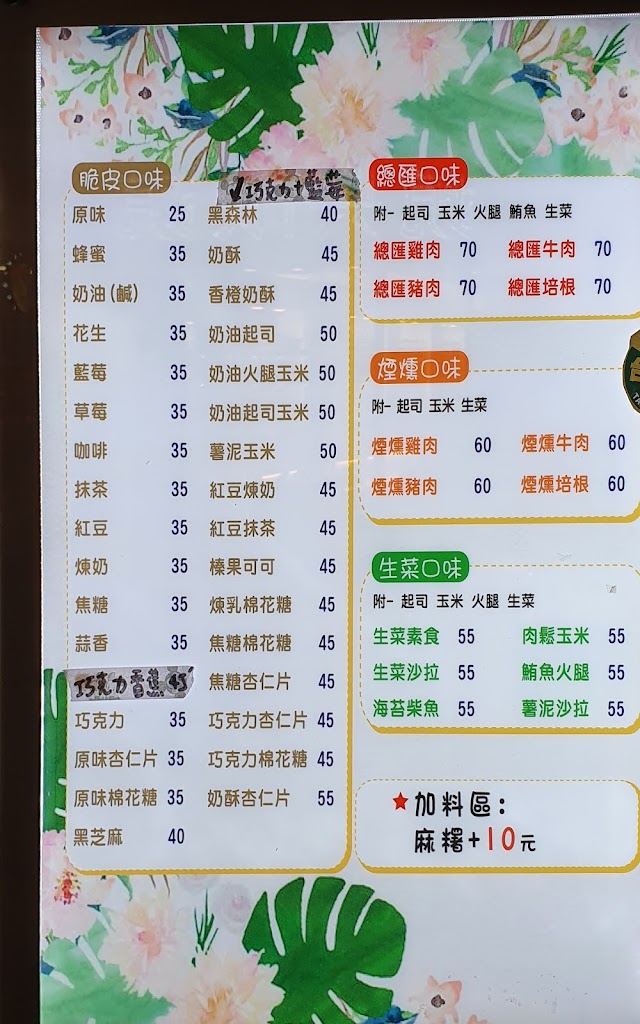 脆皮口味
原味 25
蜂蜜 35
奶油(鹹) 35
花生 35
藍莓 35
草莓 35
咖啡 35
抹茶 35
紅豆 35
煉奶 35
焦糖 35
蒜香 35
巧克力香蕉 45
巧克力 35
原味杏仁片 35
原味棉花糖 35
黑芝麻 40
巧克力+藍莓
黑森林 40
奶酥 45
香橙奶酥 45
奶油起司 50
奶油火腿玉米 50
奶油起司玉米 50
薯泥玉米 50
紅豆煉奶 45
紅豆抹茶 45
榛果可可 45
煉乳棉花糖 45
焦糖棉花糖 45
焦糖杏仁片 45
巧克力杏仁片 45
巧克力棉花糖 45
奶酥杏仁片 55
總匯口味
附- 起司 玉米 火腿 鮪魚 生菜
總匯雞肉 70 總匯牛肉 70
總匯豬肉 70 總匯培根 70
煙燻口味
附- 起司 玉米 生菜
煙燻雞肉 60 煙燻牛肉 60
煙燻豬肉 60 煙燻培根 60
生菜口味
附- 起司 玉米 火腿 生菜
生菜素食 55 肉鬆玉米 55
生菜沙拉 55 鮪魚火腿 55
海苔柴魚 55 薯泥沙拉 55
★加料區:
麻糬+10元